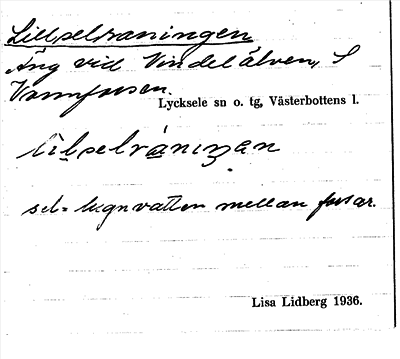 Lillselraningen
Äng vid Vindelälven, S
Vannforsen.
Lycksele sn o. tg, Västerbottens l.
lilselrånıŋan
sel = lugnvatten mellan forsar.
Lisa Lidberg 1936.